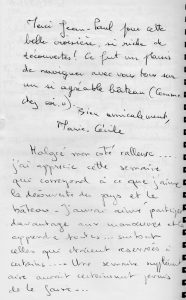 Merci Jean-Paul pour cette
belle croisière, si riche de
découvertes ! Ce fut un plaisir
de naviguer avec vous tous sur
un si agréable bateau (comme
chez soi..).
Bien amicalement,
Marie-Cécile
Malgré mon côté râleuse...
j'ai apprécié cette semaine
qui correspond à ce que j'aime
la découverte du pays et le
bateau - J'aurai aimé participer
davantage aux manoeuvres et
apprendre toutes... surtout
celles qui étaient réservées à
certains --- Une semaine supplément
aire aurait certainement permis
de le faire...